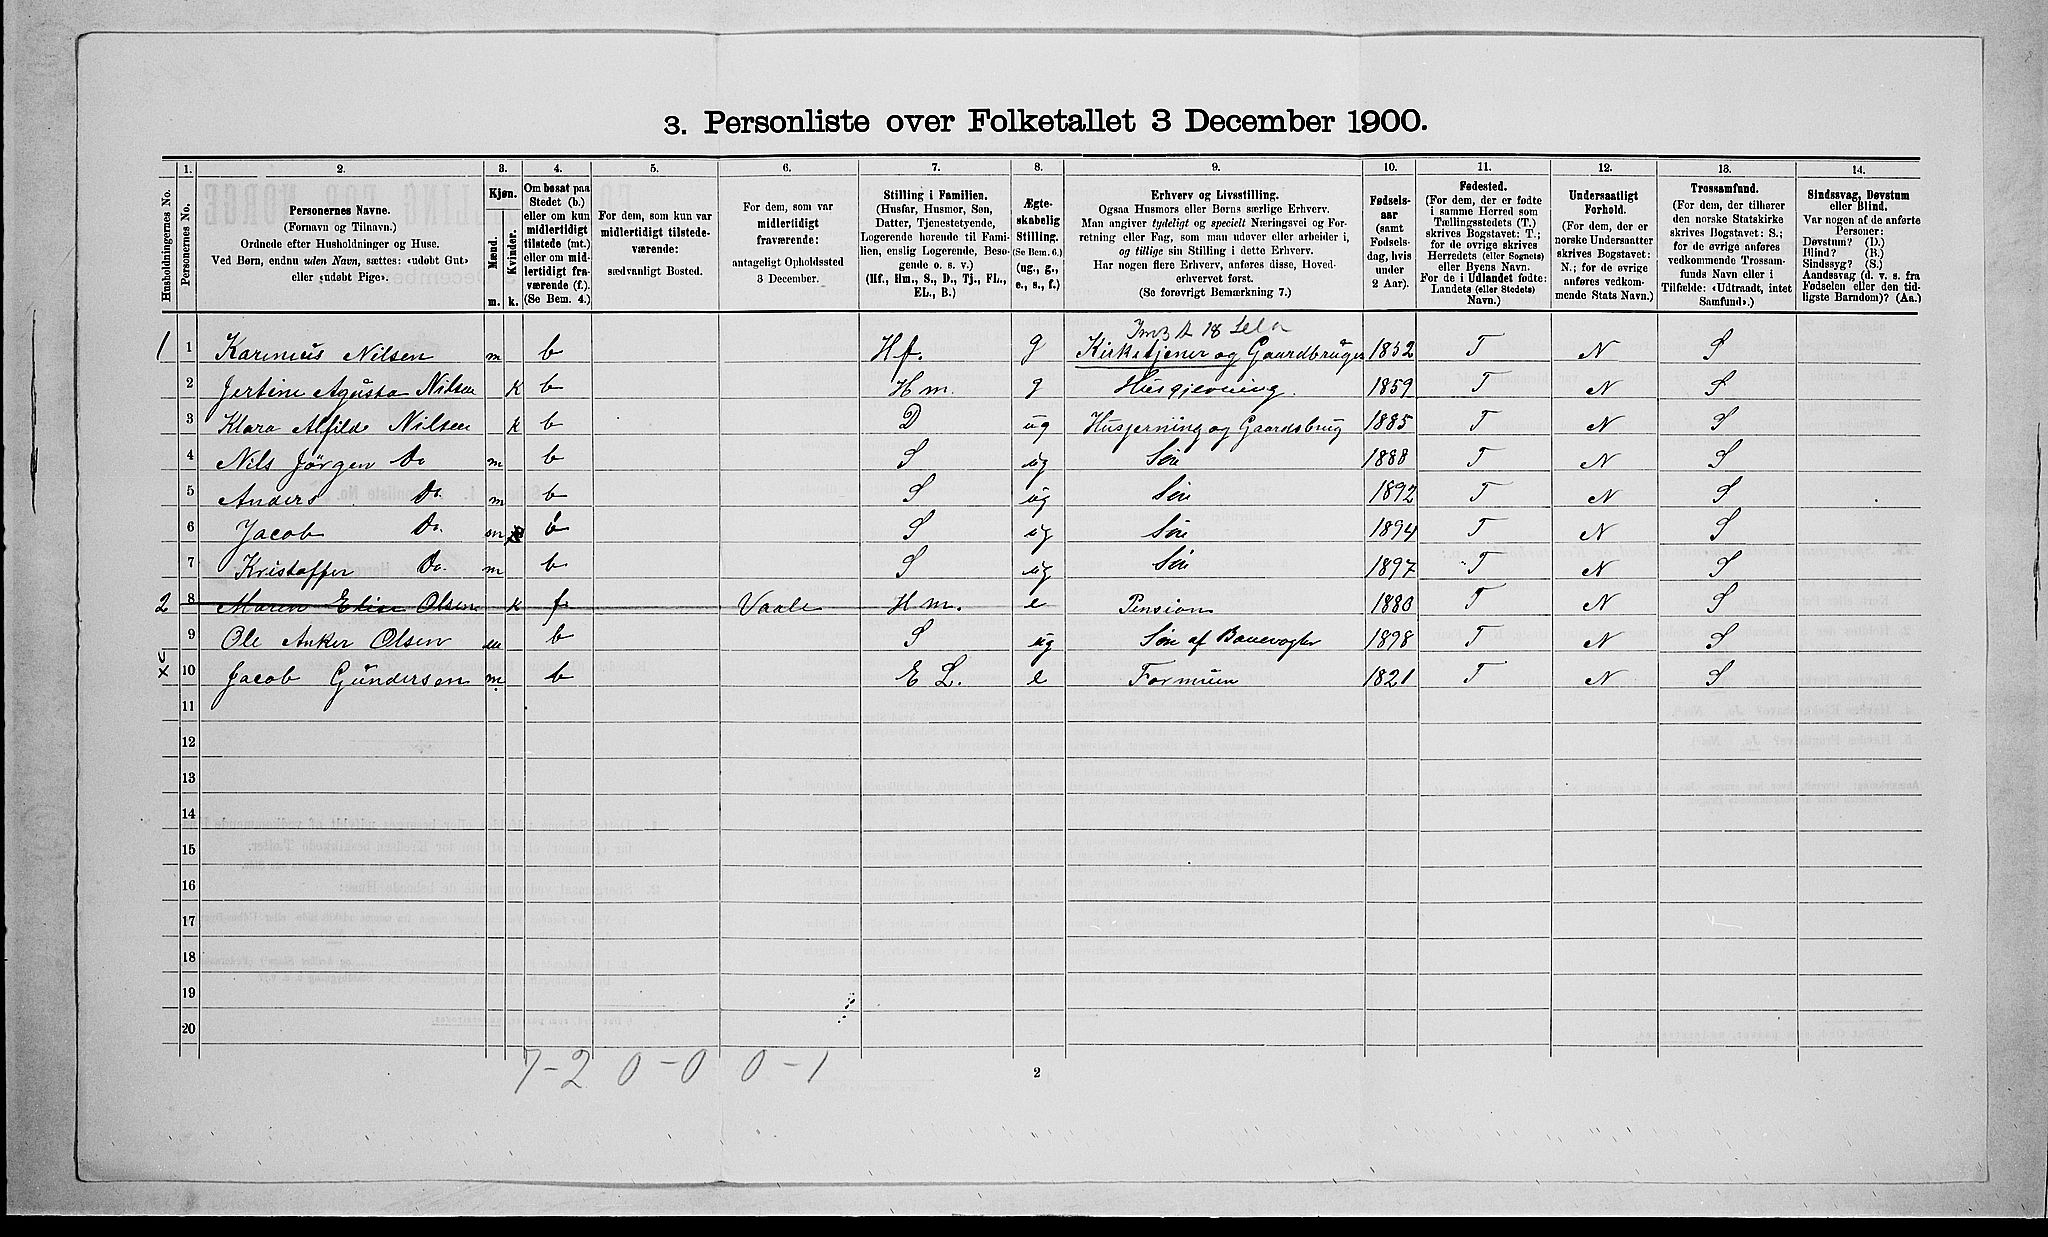 3. Personliste over Folketallet 3 December 1900.
Husholdningernes No.
1. Personernes No.
2. Personernes Navne.
(Fornavn og Tilnavn.)
Ordnede efter Husholdninger og Huse.
Ved Børn, endnu uden Navn, sættes: «udøbt Gut»
eller «udøbt Pige».
3. Kjøn.
Mænd. m.
Kvinder. k.
4. Om bosat paa
Stedet (b.)
eller om kun
midlertidigt
tilstede (mt.)
eller om mid-
lertidigt fra-
værende (f.)
(Se Bem. 4.)
5. For dem, som kun var
midlertidigt tilstede-
værende:
sædvanligt Bosted.
6. For dem, som var
midlertidigt
fraværende:
antageligt Opholdssted
3 December.
7. Stilling i Familien.
(Husfar, Husmor, Søn,
Datter, Tjenestetyende,
Logerende hørende til Fami-
lien, enslig Logerende, Besø-
gende o. s. v.)
(Hf., Hm., S., D., Tj., FL.,
EL., B.)
8. Ægte-
skabelig
Stilling.
(Se Bem. 6.)
(ug., g.,
e., s., f.)
9. Erhverv og Livsstilling.
Ogsaa Husmors eller Børns særlige Erhverv.
Man angiver tydeligt og specielt Næringsvei og For-
retning eller Fag, som man udøver eller arbeider i,
og tillige sin Stilling i dette Erhverv.
Har nogen flere Erhverv, anføres disse, Hoved-
erhvervet først.
(Se forøvrigt Bemærkning 7.)
10. Fødsels-
aar
(aar
Fødsels-
dag, hvis
under
2 Aar).
11. Fødested.
(For dem, der er fødte
i samme Herred som
Tællingsstedets (T.)
skrives Bogstavet: T.;
for de øvrige skrives
Herredets (eller Sognets)
eller Byens Navn.
For de i Udlandet fødte:
Landets (eller Stedets)
Navn.)
12. Undersaatligt
Forhold.
(For dem, der er
norske Undersaatter
skrives Bogstavet:
N.; for de øvrige
anføres vedkom-
mende Stats Navn.)
13. Trossamfund.
(For dem, der tilhører
den norske Statskirke
skrives Bogstavet: S.;
for de øvrige anføres
vedkommende Trossam-
funds Navn eller i
Tilfælde: «Udtraadt, intet
Samfund».)
14. Sindssvag, Døvstum
eller Blind.
Var nogen af de anførte
Personer:
Døvstum? (D.)
Blind? (B.)
Sindssyg? (S.)
Aandssvag (d. v. s. fra
Fødselen eller den tid-
ligste Barndom)? (Aa.)
1 1 Karinius Nilsen m b Hf. g Kirketjener og Gaardbruger 1852 T N S
2 Jertine Agusta Nilsen k b Hm. g Husgjerning. 1859 T N S
3 Klara Alfilde Nilsen k b D ug Husjerning og Gaardsbrug 1885 T N S
4 Nils Jörgen Do m b S ug Sön 1888 T N S
5 Anders Do. m b S ug Sön 1892 T N S
6 Jacob Do. m b S ug Sön 1894 T N S
7 Kristoffer Do. m b S ug Sön 1897 T N S
2 8 Maren Elise Olsen k f. Vaale Hm. e Pension 1880 T N S
9 Ole Anker Olsen m b S ug Sön af Banevogter 1898 T N S
x 10 Jacob Gundersen m. b E L. e Formuen 1821 T N S
11
12
13
14
15
16
17
18
19
20
7-2 0-0 0-1
2